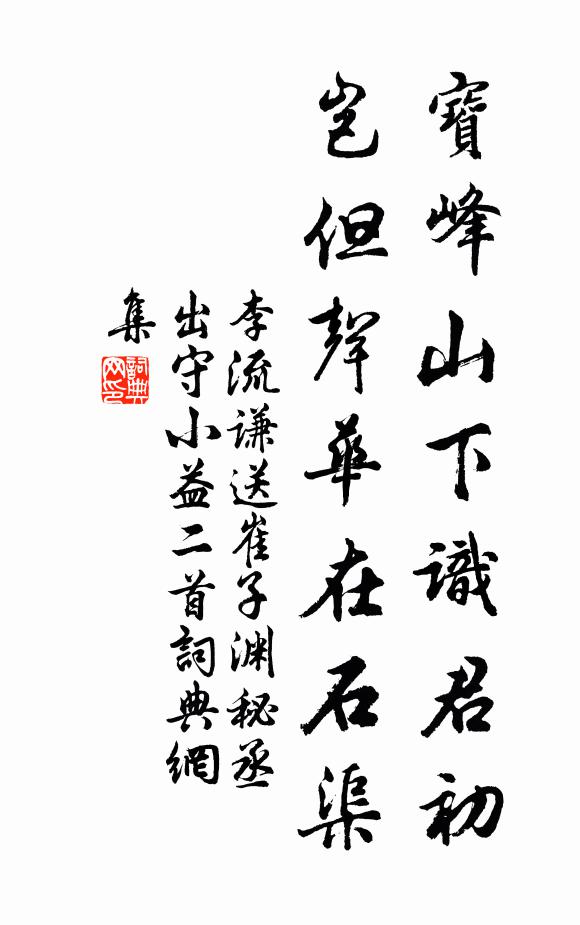 寶峰山下識君初
豈但聲華在石渠
李流谦送崔子渊秘丞
出守小益二首詞典網
集
詞典
网印